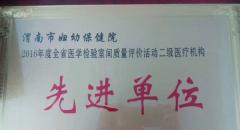 渭南市妇幼保健院
2016年度全省医学检验室间质量评价活动二级医疗机构
先进单位